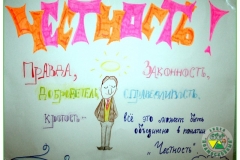 ЧЕСТНОСТЬ!
ПРАВДА, ЗАКОННОСТЬ,
ДОБРОДЕТЕЛЬ, СПРАВЕДЛИВОСТЬ,
КРОТОСТЬ – всё это может быть
объединено в понятии
"Честность"